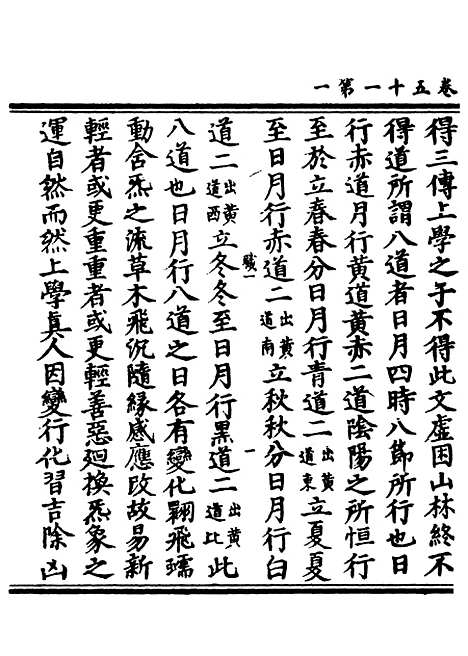 卷五十一第一
得三傳上學之子不得此文虛困山林終不
得道所謂八道者日月四時八節所行也日
行赤道月行黃道黃赤二道陰陽之所恒行
至於立春春分日月行青道二出黃道東立夏夏
至日月行赤道二出黃道南立秋秋分日月行白
道二出黃道西立冬冬至日月行黑道二出黃道北此
八道也日月行八道之日各有變化翾飛蠕
動舍炁之流草木飛沉隨緣感應改故易新
輕者或更重重者或更輕善惡迴換炁象之
運自然而然上學真人因變行化習吉除凶